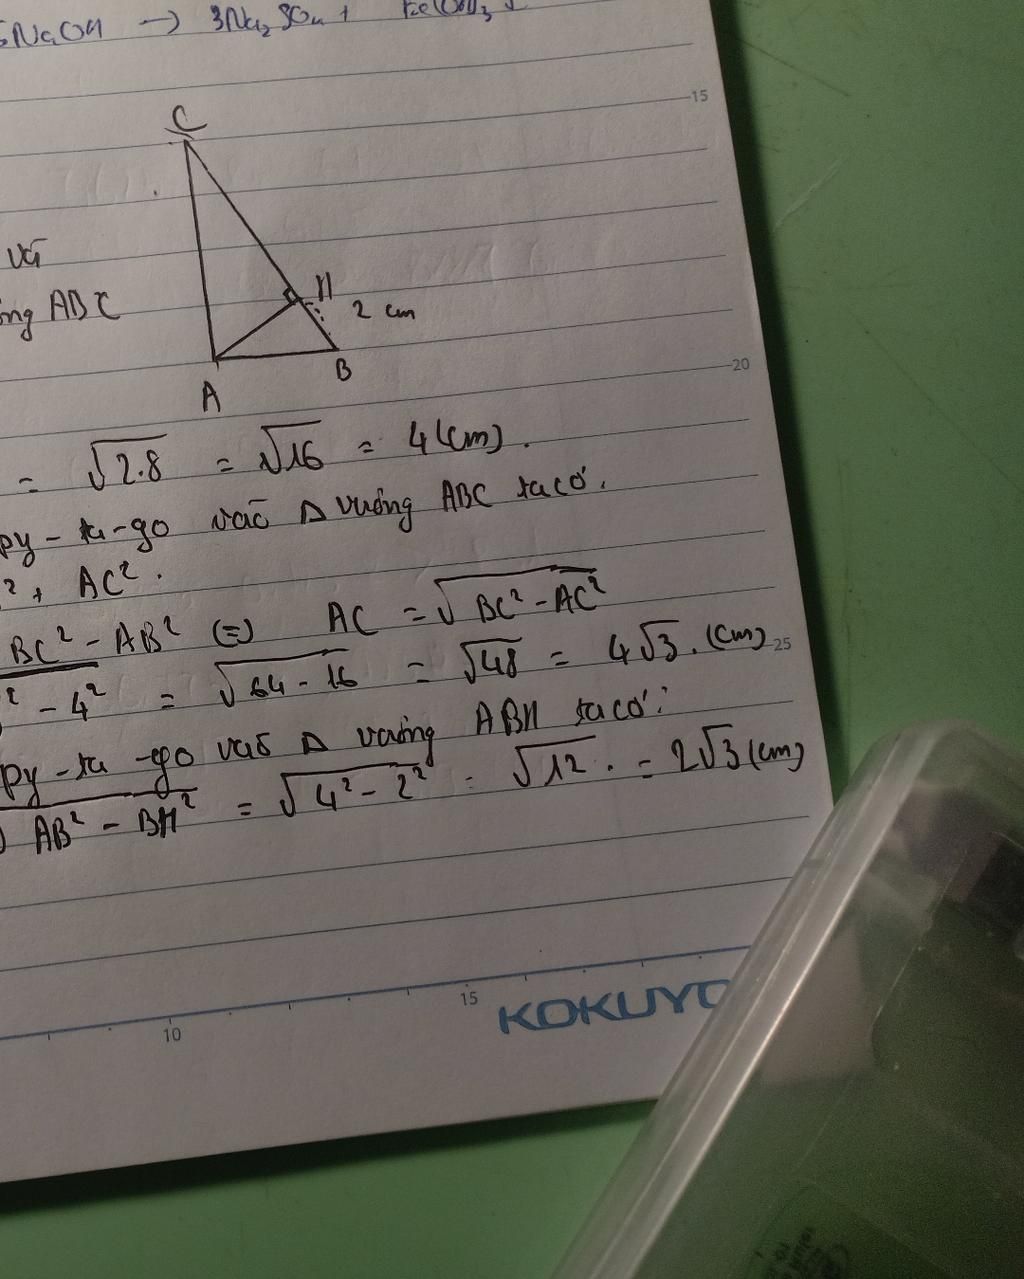 NaOH → 3Na₂SO₄ +
15
C
và
ABC
H
2 cm
B
20
A
= √2.8 = √16 = 4(cm).
py-ta-go vào Δ vuông ABC ta có:
² + AC².
BC² - AB² (=) AC = √BC² - AC²
² - 4² = √64 - 16 = √48 = 4√3. (cm) 25
py-ta-go vào Δ vuông ABH ta có:
AB² - BH² = √4² - 2² = √12. = 2√3 (cm)
10
15
KOKUYO